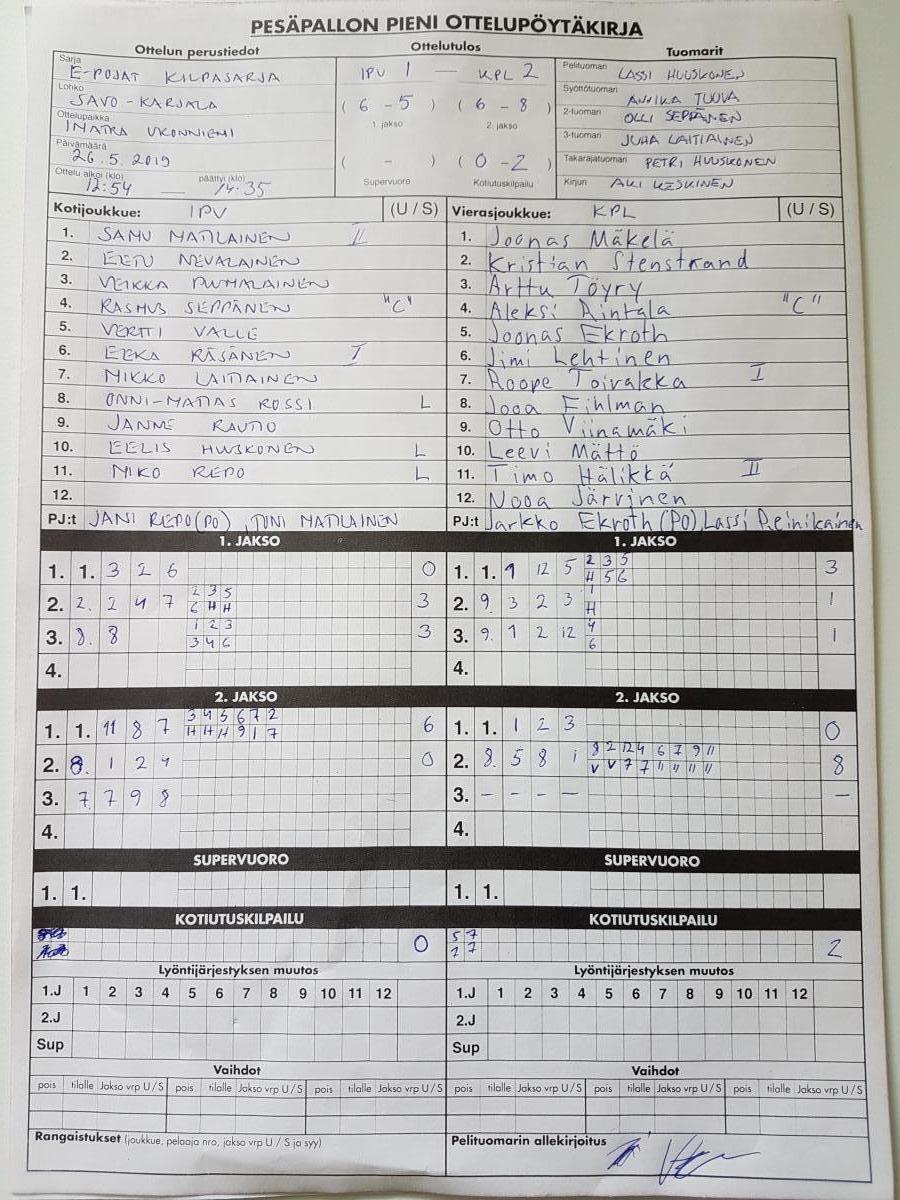 PESÄPALLON PIENI OTTELUPÖYTÄKIRJA
Ottelun perustiedot Ottelutulos Tuomarit
Sarja E-POJAT KILPASARJA
Lohko SAVO-KARJALA
Ottelupaikka IMATRA UKONNIEMI
Päivämäärä 26.5.2019
Ottelu alkoi (klo) 12:54 — päättyi (klo) 14.35
IPV 1 — KPL 2
( 6 - 5 ) ( 6 - 8 )
1. jakso 2. jakso
( - ) ( 0 - 2 )
Supervuoro Kotiutuskilpailu
Pelituomari LASSI HUUSKONEN
Syöttötuomari ANNIKA TUUVA
2-tuomari OLLI SEPPÄNEN
3-tuomari JUHA LAITIAINEN
Takarajatuomari PETRI HUUSKONEN
Kirjuri AKI KESKINEN
Kotijoukkue: IPV (U / S)
1. SAMU MATILAINEN II
2. EETU NEVALAINEN
3. VEIKKA PUHALAINEN
4. RASMUS SEPPÄNEN "C"
5. VERTTI VALLE
6. EEKA RÄSÄNEN I
7. MIKKO LAITIAINEN
8. ONNI-MATIAS ROSSI L
9. JANNE RAUTIO
10. EELIS HUUSKONEN L
11. MIKO REPO L
12.
PJ:t JANI REPO (PO), TONI MATILAINEN
Vierasjoukkue: KPL (U / S)
1. Joonas Mäkelä
2. Kristian Stenstrand
3. Arttu Töyry
4. Aleksi Rintala "C"
5. Joonas Ekroth
6. Jimi Lehtinen
7. Roope Toivakka I
8. Jooa Fihlman
9. Otto Viinamäki
10. Leevi Mättö
11. Timo Hälikkä II
12. Nooa Järvinen
PJ:t Jarkko Ekroth (PO), Lassi Reinikainen
1. JAKSO
1. 1. 3 2 6 0
2. 2. 2 4 7 2 3 5 3
6 H H
3. 8. 8 1 2 3 3
3 4 6
4.
1. JAKSO
1. 1. 1 12 5 2 3 5 3
H 5 6
2. 9. 3 2 3 1 1
H
3. 9. 1 2 12 4 1
6
4.
2. JAKSO
1. 1. 11 8 7 3 4 5 6 7 2 6
H H H 9 1 7
2. 8. 1 2 4 0
3. 7. 7 9 8
4.
2. JAKSO
1. 1. 1 2 3 0
2. 8. 5 8 1 8 2 12 4 6 7 9 11 8
V V 7 7 " " " "
3. - - - - -
4.
SUPERVUORO
1. 1.
SUPERVUORO
1. 1.
KOTIUTUSKILPAILU
0
KOTIUTUSKILPAILU
5 7 2
7 7
Lyöntijärjestyksen muutos
1.J 1 2 3 4 5 6 7 8 9 10 11 12
2.J
Sup
Lyöntijärjestyksen muutos
1.J 1 2 3 4 5 6 7 8 9 10 11 12
2.J
Sup
Vaihdot
pois tilalle Jakso vrp U / S pois tilalle Jakso vrp U / S pois tilalle Jakso vrp U / S
Vaihdot
pois tilalle Jakso vrp U / S pois tilalle Jakso vrp U / S pois tilalle Jakso vrp U / S
Rangaistukset (joukkue, pelaaja nro, jakso vrp U / S ja syy)
Pelituomarin allekirjoitus